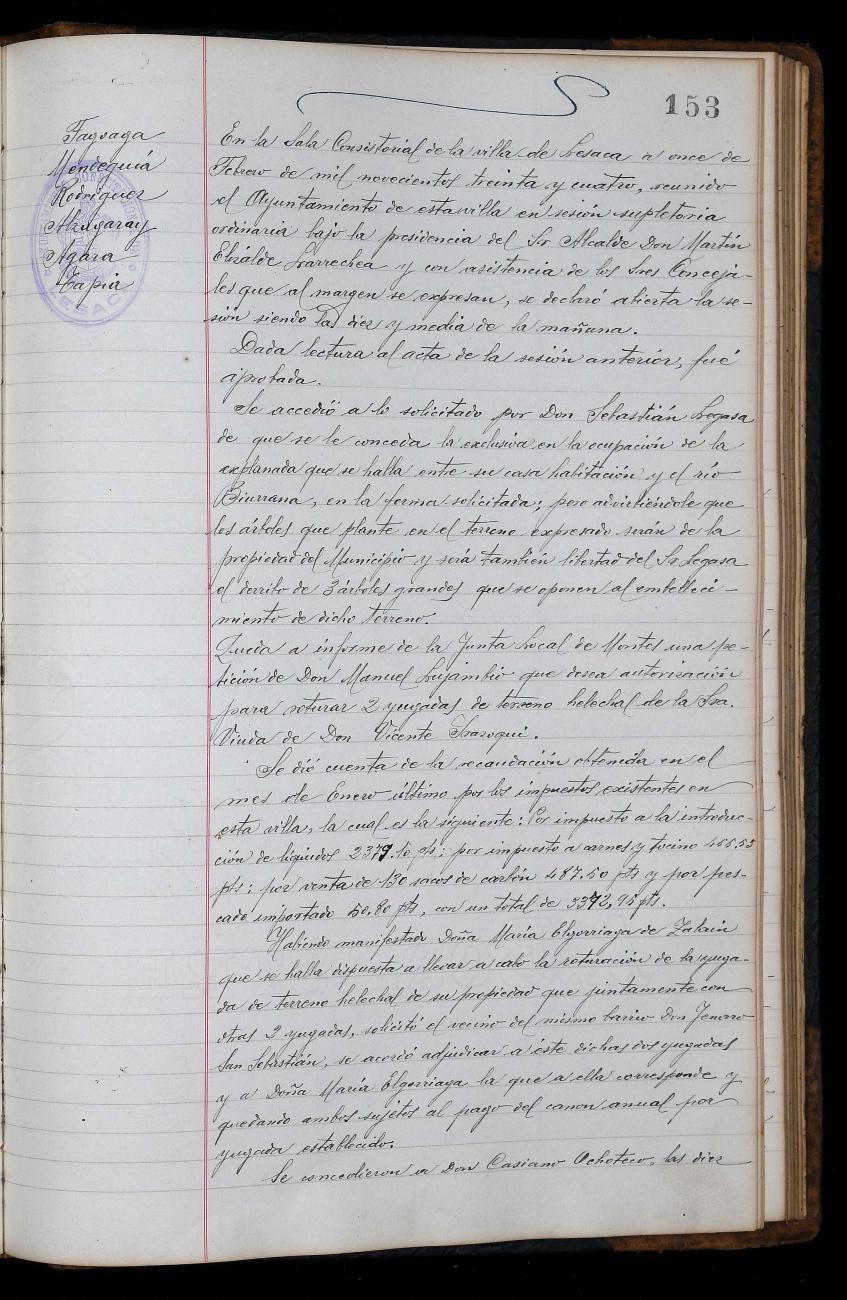 153
Taysaga
Mendeguía
Rodriguez
Alzugaray
Agara
Tapia
En la Sala Consistorial de la villa de Lesaca a once de
Febrero de mil novecientos treinta y cuatro, reunido
el Ayuntamiento de esta villa en sesión supletoria
ordinaria bajo la presidencia del Sr Alcalde Don Martín
Elizalde Larrechea y con asistencia de los Sres Conceja-
les que al margen se expresan, se declaró abierta la se-
sión siendo las diez y media de la mañana.
Dada lectura al acta de la sesión anterior, fué
aprobada.
Se accedió a lo solicitado por Don Sebastián Legasa
de que se le conceda la exclusiva en la ocupación de la
explanada que se halla entre su casa habitación y el río
Biurrana, en la forma solicitada; pero advirtiéndole que
los árboles que plante en el terreno expresado serán de la
propiedad del Municipio y será también libertad del Sr Legasa
el derribo de 3 árboles grandes que se oponen al embelleci-
miento de dicho terreno.
Queda a informe de la Junta Local de Montes una pe-
tición de Don Manuel Lujambio que desea autorización
para roturar 2 yugadas de terreno helechal de la Sra.
Viuda de Don Vicente Irazoqui.
Se dió cuenta de la recaudación obtenida en el
mes de Enero último por los impuestos existentes en
esta villa, la cual es la siguiente: Por impuesto a la introduc-
ción de líquidos 2379.10 pts; por impuesto a carnes y tocino 455.55
pts; por venta de 130 sacos de carbón 487.50 pts y por pes-
cado importado 50.80 pts, con un total de 3372,95 pts.
Habiendo manifestado Doña María Elgorriaga de Zalain
que se halla dispuesta a llevar a cabo la roturación de la yuga-
da de terreno helechal de su propiedad que juntamente con
otras 2 yugadas, solicitó el vecino del mismo barrio Don Jenaro
San Sebastián, se acordó adjudicar a éste dichas dos yugadas
y a Doña María Elgorriaga la que a ella corresponde y
quedando ambos sujetos al pago del canon anual por
yugada establecido.
Se concedieron a Don Casiano Ochoteco, las diez